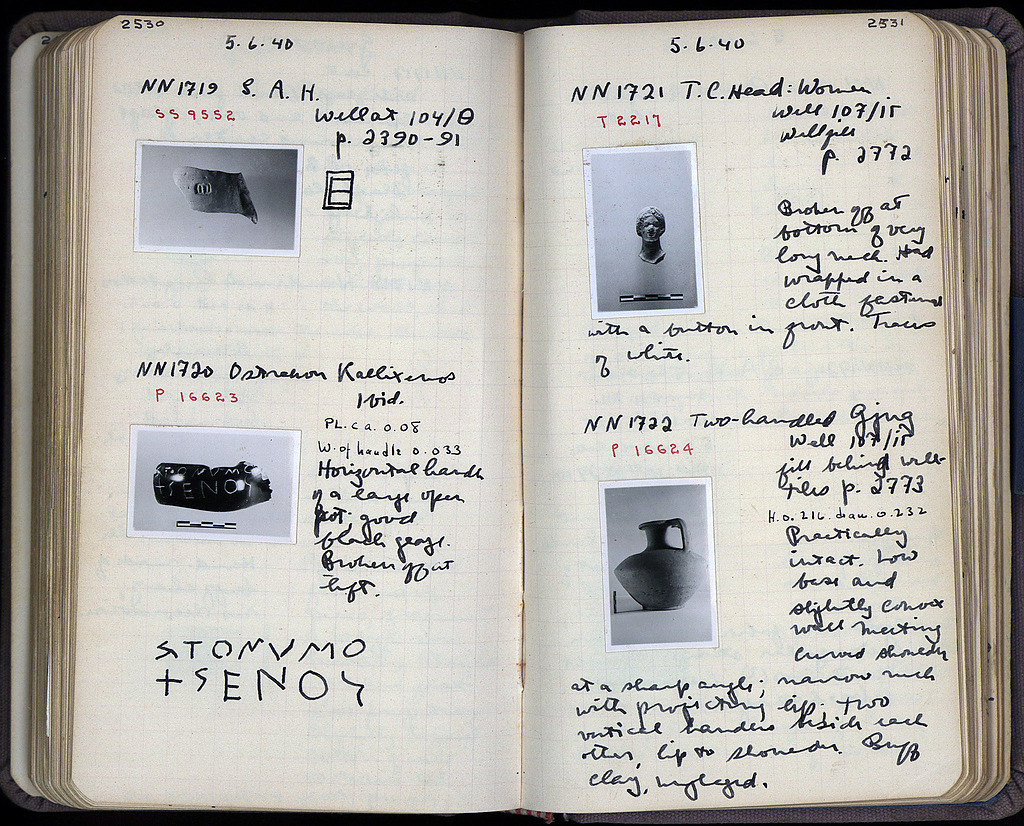 2530
5·6·40
NN1719 S. A. H.
SS 9552
Well at 104/Θ
p. 2390-91
NN1720 Ostrakon Kallixenos
P 16623
Ibid.
PL. ca. 0.08
W. of handle 0.033
Horizontal handle
of a large open
pot; good
black glaze.
Broken off at
left.
STONVMO
+SENO
2531
5·6·40
NN1721 T.C. Head: Woman
T 2217
Well 107/ΙΕ
Well fill
p. 2772
Broken off at
bottom of very
long neck. Head
wrapped in a
cloth fastened
with a button in front. Traces
of white.
NN1722 Two-handled Jug
P 16624
Well 107/ΙΕ
fill behind well-
tiles p. 2773
H. 0.216. diam. 0.232
Practically
intact. Low
base and
slightly convex
wall meeting
curved shoulder
at a sharp angle; narrow neck
with projecting lip. Two
vertical handles beside each
other, lip to shoulder. Buff
clay, unglazed.